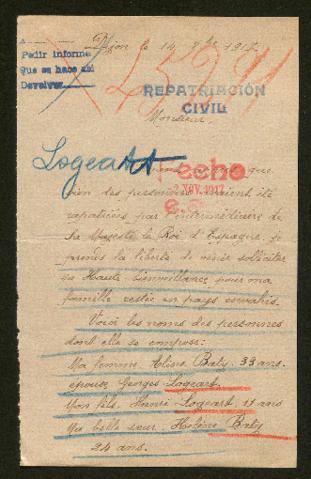 Dijon le 14 8bre 1917.
Pedir informe
Que se hace así
Devolver
REPATRIACIÓN
CIVIL
Monsieur
Logeart
que
Hecho
2 NOV. 1917
des personnes avaient été
rapatriées par l'intermédiaire de
Sa Majesté le Roi d'Espagne, je
prends la liberté de venir solliciter
sa Haute bienveillance pour ma
famille restée en pays envahis.
Voici les noms des personnes
dont elle se compose:
Ma femme Aline Baty. 33 ans.
épouse Georges Logeart.
Mon fils. Henri Logeart. 11 ans
Ma belle sœur. Hélène Baty
24 ans.